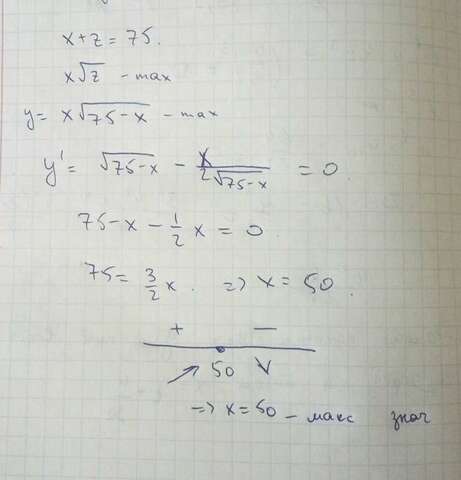 x+z=75.
x√z - max
y= x√75-x - max
y' = √75-x - x/2√75-x = 0.
75-x - 1/2 x = 0.
75 = 3/2 x. => x = 50.
+ —
50
=> x=50 - макс знач